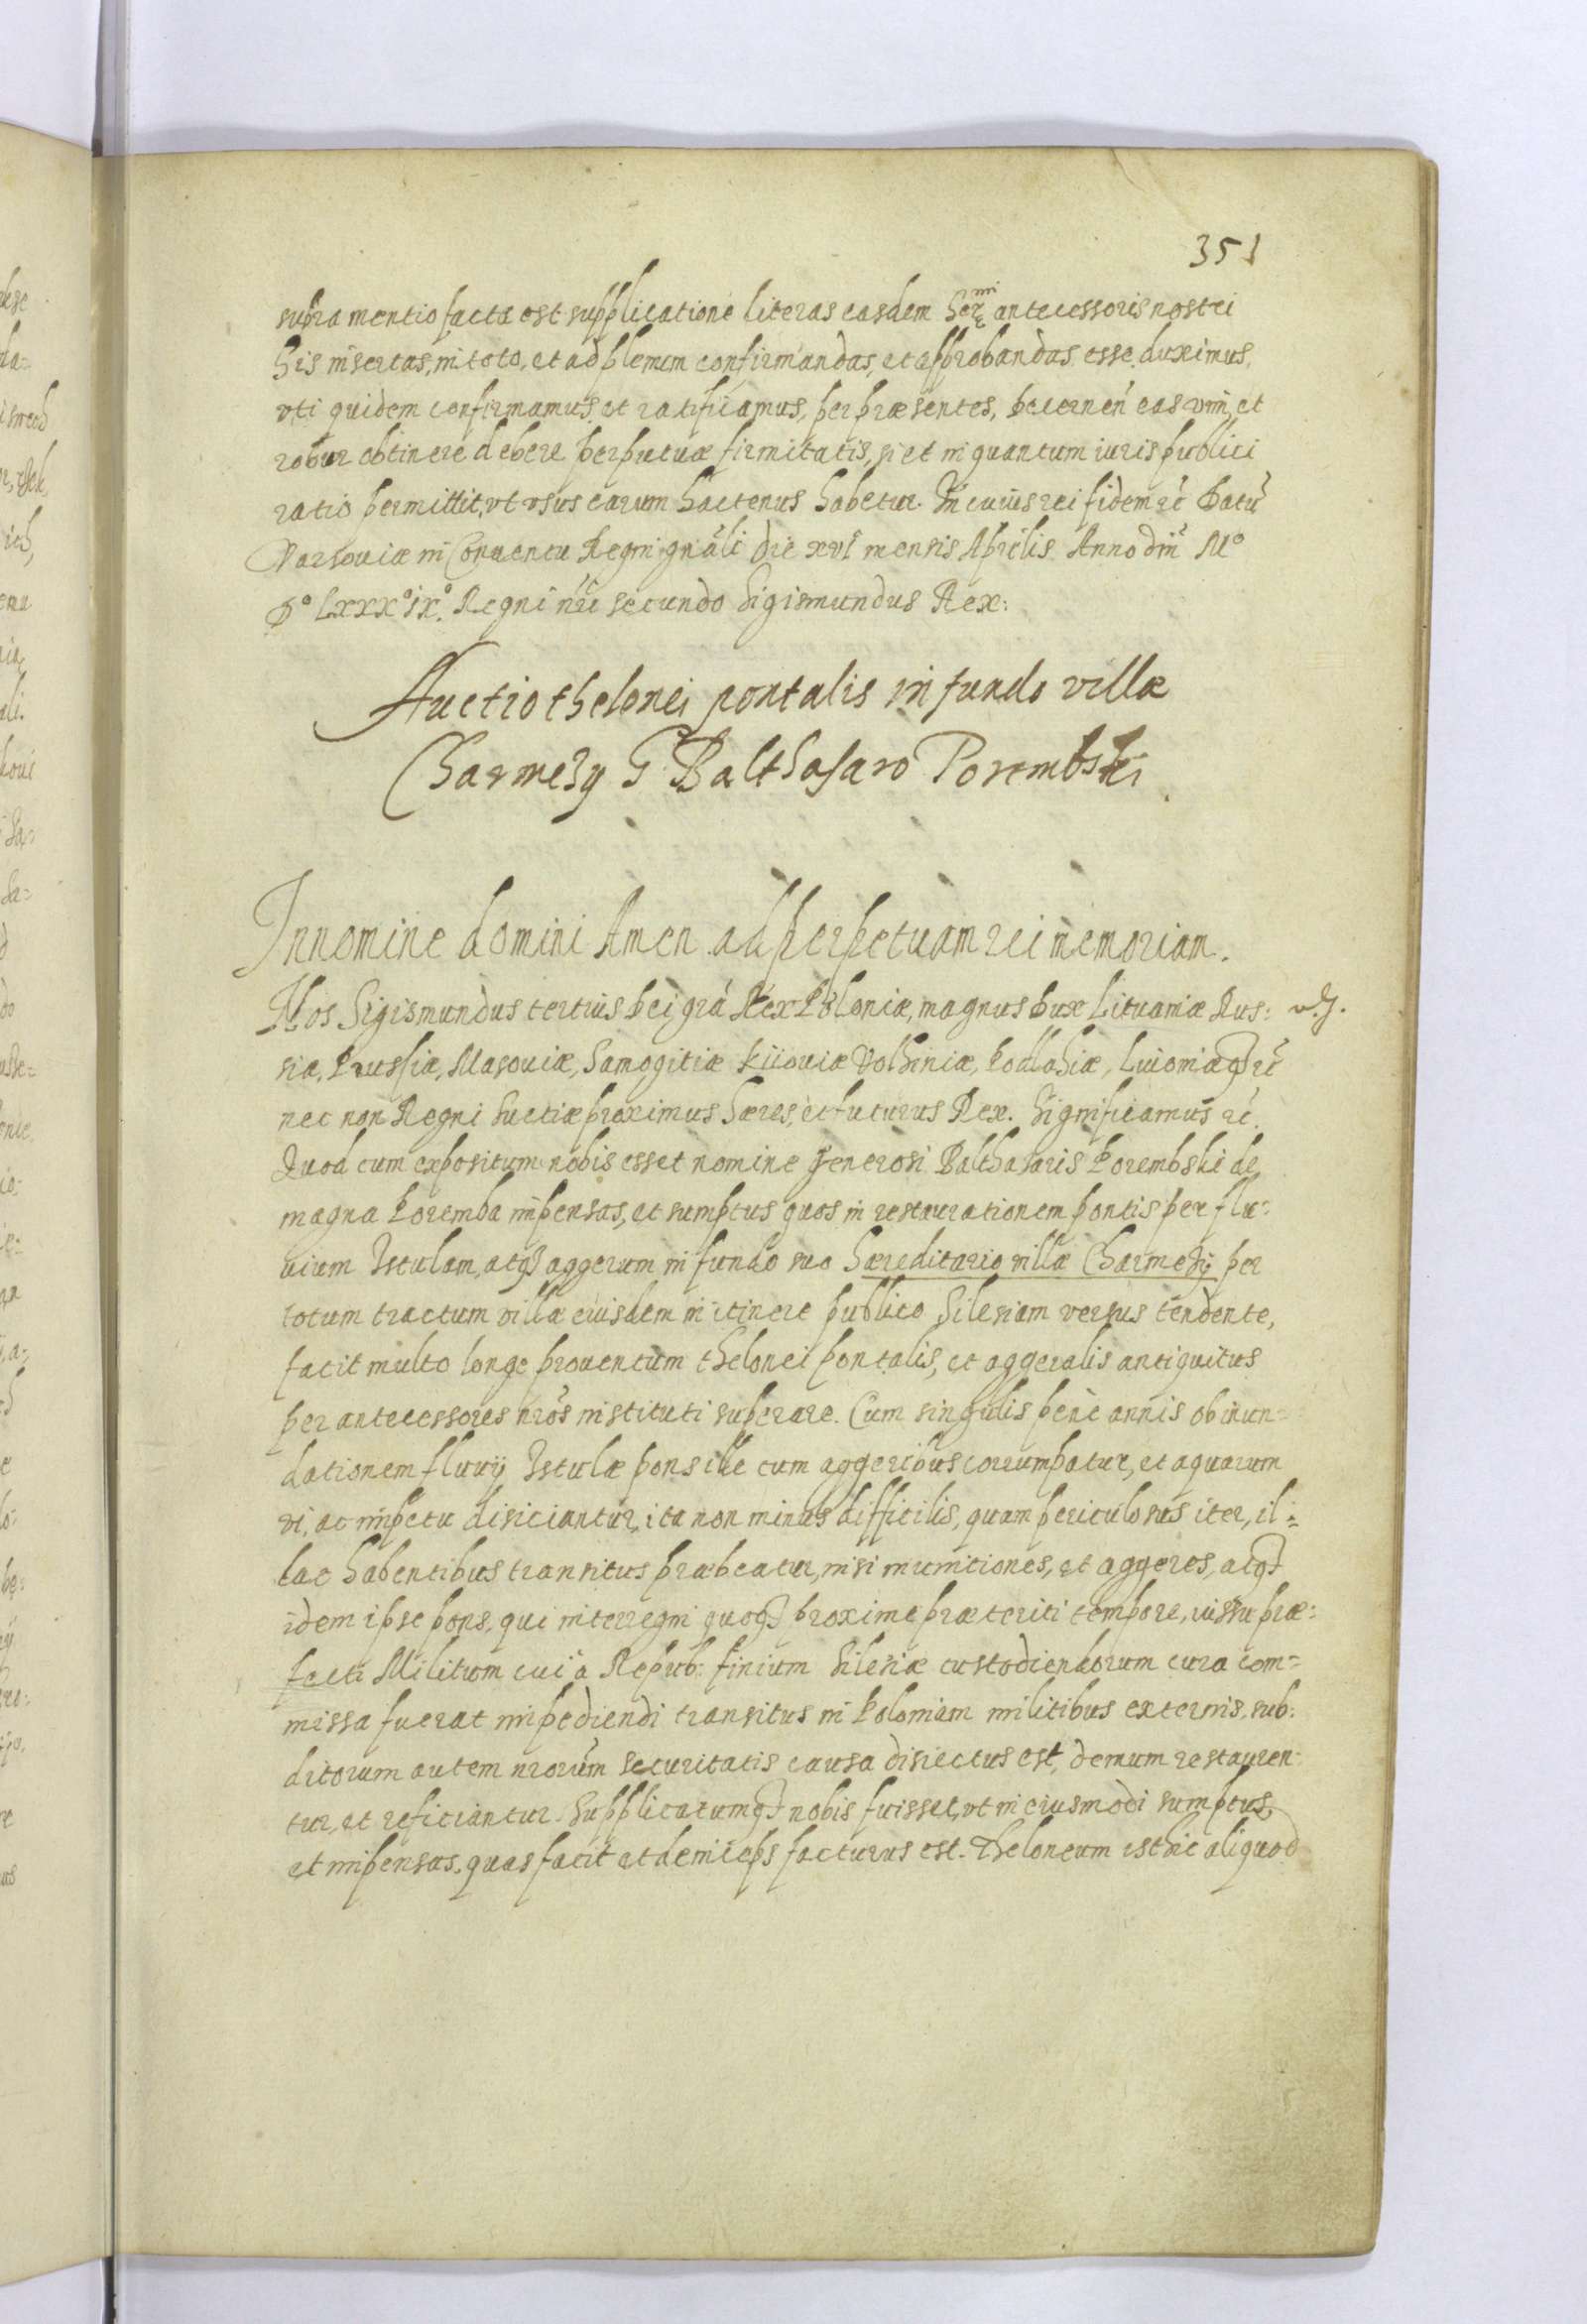 351
supra mentio facta est supplicatione literas easdem Ser.mi antecessoris nostri
his insertas, in toto, et ad plenum confirmandas, et approbandas esse duximus,
vti quidem confirmamus et ratificamus, per præsentes, decernen̄ eas vim, et
robur obtinere debere perpetuæ firmitatis, si et in quantum iuris publici
ratio permittit, vt vsus earum hactenus habetur. In cuius rei fidem etc̄ Datū
Varsouiæ in Conuentu Regni gnāli die xvi mensis Aprilis Anno dnī Mº
Dº Lxxxºixº. Regni nr̄i secundo Sigismundus Rex:
Auctio thelonei pontalis in fundo villæ
Charmezy G Balthasaro Porembski
In nomine domini Amen ad perpetuam rei memoriam.
Nos Sigismundus tertius Dei grā Rex Poloniæ, magnus Dux Lituaniæ Rus:
siæ, Prussiæ, Masouiæ, Samogitiæ Kijouiæ Volhiniæ, Podlahiæ, Liuoniæq3 etc̄
nec non Regni Suetiæ proximus hæres, et futurus Rex. Significamus etc̄.
Quod cum expositum nobis esset nomine Generosi Balthasaris Porembski de
magna Poremba impensas, et sumptus quos in restaurationem pontis per flu:
uium Istulam, atq3 aggerum in fundo suo hæreditario villæ Charmezy per
totum tractum villæ eiusdem in itinere publico Silesiam versus tendente,
facit multo longe prouentum thelonei pontalis, et aggeralis antiquitus
per antecessores nr̄os instituti superare. Cum singulis penè annis ob inun=
dationem fluuij Istulæ pons ille cum aggeribus corrumpatur, et aquarum
vi, ac impetu disiciantur, ita non minus difficilis, quam periculosus iter, il:
lac habentibus transitus præbeatur, nisi munitiones, et aggeres, atq3
idem ipse pons, qui interregni quoq3 proxime præteriti tempore, iussu præ:
fecti Militum cui à Repub: finium Silesiæ custodiendorum cura com=
missa fuerat impediendi transitus in Poloniam militibus externis, sub:
ditorum autem nrorum̄ securitatis causa disiectus est, demum restauren:
tur, et reficiantur. Supplicatumq3 nobis fuisset, vt in eiusmodi sumptus,
et impensas, quas facit et deinceps facturus est. Theloneum isthic aliquod